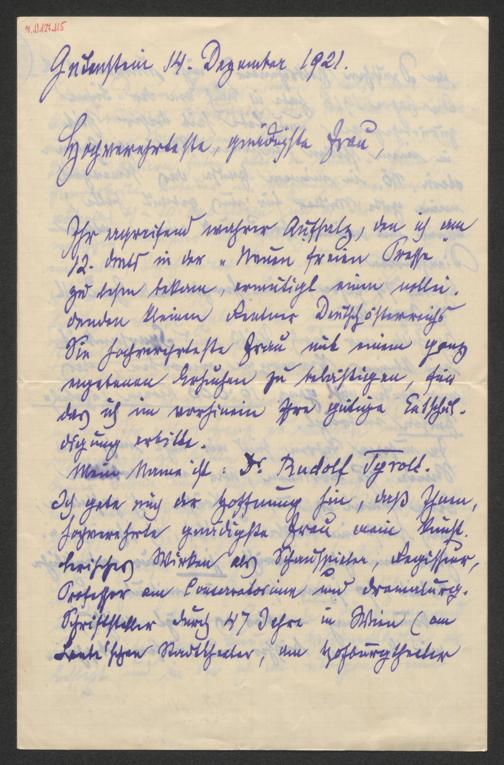 Gutenstein 14. Dezember 1921.
Hochverehrteste, gnädigste Frau,
Ihr ergreifend wahrer Aufsatz, den ich am
12. dMts in der „Neuen freien Presse"
zu lesen bekam, ermutigt einen notlei-
denden kleinen Rentner Deutschösterreichs
Sie hochverehrteste Frau mit einem ganz
ergebenen Ersuchen zu belästigen, für
das ich im vorhinein Ihre gütige Entschul-
digung erbitte.
Mein Name ist: Dr. Rudolf Tyrolt.
Ich gebe mich der Hoffnung hin, daß Ihnen,
hochverehrte gnädigste Frau mein künst-
lerisches Wirken als Schauspieler, Regisseur,
Professor am Conservatorium und dramaturg.
Schriftsteller durch 47 Jahre in Wien (am
Laube'schen Stadttheater, am Hofburgtheater